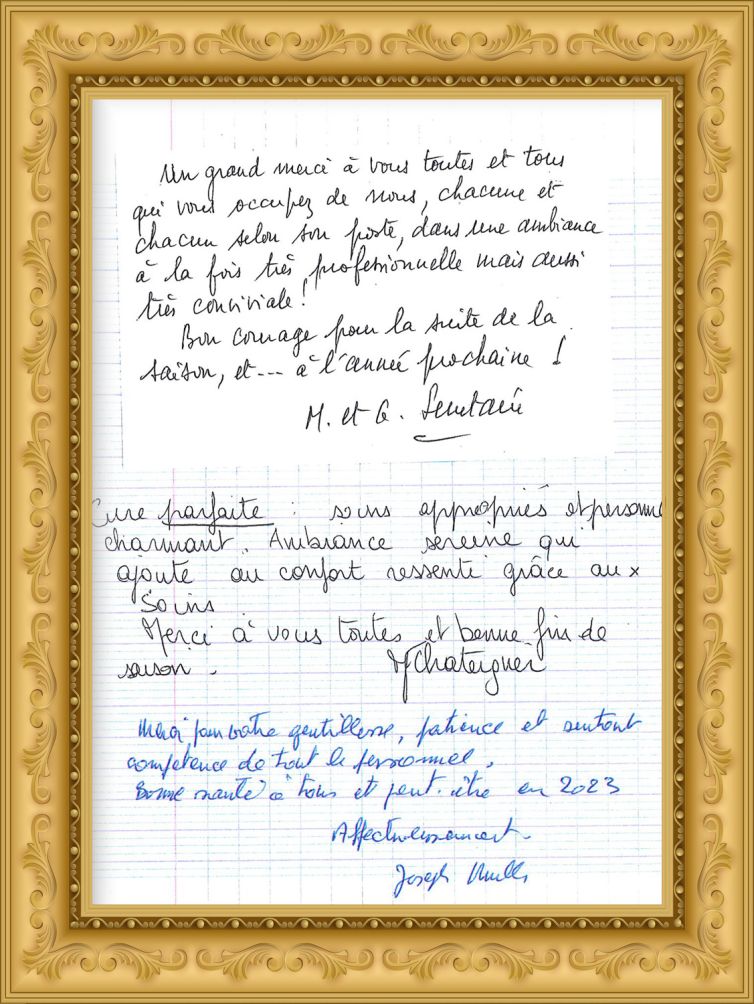 Un grand merci à vous toutes et tous
qui vous occupez de nous, chacune et
chacun selon son poste, dans une ambiance
à la fois très professionnelle mais aussi
très conviviale !
Bon courage pour la suite de la
saison, et --- à l'année prochaine !
M. et G. Secretain
Cure parfaite : soins appropriés et personnel
charmant. Ambiance sereine qui
ajoute au confort ressenti grâce aux
Soins
Merci à vous toutes et bonne fin de
saison.
Chateignier
Merci pour votre gentillesse, patience et surtout
compétence de tout le personnel.
Bonne santé à tous et peut-être en 2023
Affectueusement.
Joseph